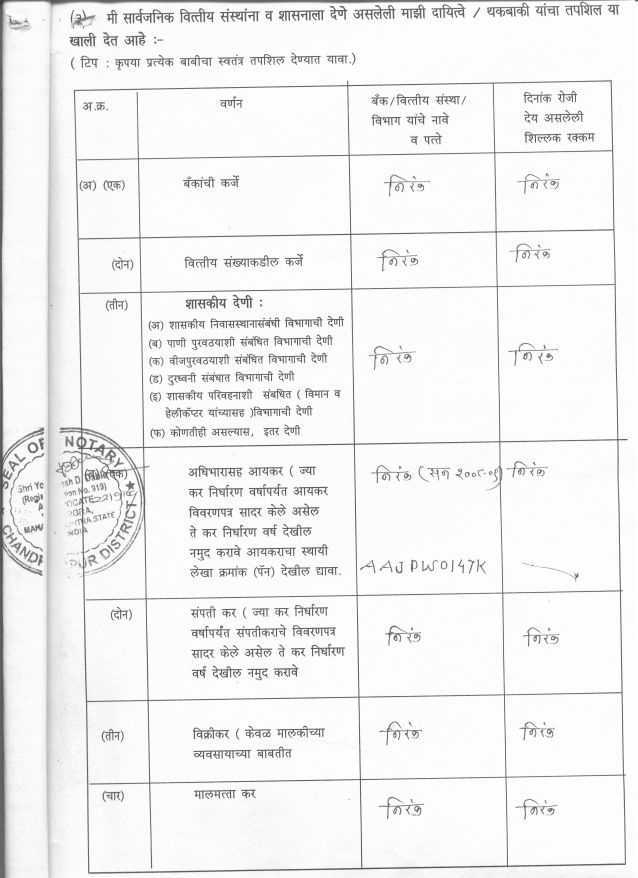 (२) मी सार्वजनिक वित्तीय संस्थांना व शासनाला देणे असलेली माझी दायित्वे / थकबाकी यांचा तपशिल या
खाली देत आहे :-
( टिप : कृपया प्रत्येक बाबीचा स्वतंत्र तपशिल देण्यात यावा.)
अ.क्र. वर्णन बँक/वित्तीय संस्था/ दिनांक रोजी
विभाग यांचे नावे देय असलेली
व पत्ते शिल्लक रक्कम
(अ) (एक) बँकांची कर्जे निरंक निरंक
(दोन) वित्तीय संख्याकडील कर्जे निरंक निरंक
(तीन) शासकीय देणी :
(अ) शासकीय निवासस्थानासंबंधी विभागाची देणी
(ब) पाणी पुरवठयाशी संबंधित विभागाची देणी
(क) वीजपुरवठयाशी संबंधित विभागाची देणी निरंक निरंक
(ड) दुरध्वनी संबंधात विभागाची देणी
(इ) शासकीय परिवहनाशी संबधित ( विमान व
हेलीकॅप्टर यांच्यासह )विभागाची देणी
(फ) कोणतीही असल्यास, इतर देणी
SEAL OF NOTARY
CHANDRAPUR DISTRICT
(ब) (एक) अधिभारासह आयकर ( ज्या निरंक (सन २००८-०९) निरंक
कर निर्धारण वर्षापर्यंत आयकर
विवरणपत्र सादर केले असेल
ते कर निर्धारण वर्ष देखील
नमुद करावे आयकराचा स्थायी
लेखा क्रमांक (पॅन) देखील द्यावा. AAJPW0147K
(दोन) संपती कर ( ज्या कर निर्धारण
वर्षापर्यंत संपतीकराचे विवरणपत्र निरंक निरंक
सादर केले असेल ते कर निर्धारण
वर्ष देखील नमुद करावे
(तीन) विक्रीकर ( केवळ मालकीच्या निरंक निरंक
व्यवसायाच्या बाबतीत
(चार) मालमत्ता कर निरंक निरंक